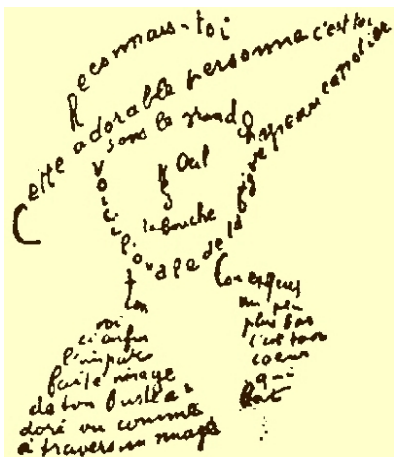 Reconnais-toi
Cette adorable personne c'est toi
Sous le grand chapeau canotier
Œil
Nez
la bouche
Voici l'ovale de ta figure
Ton cou exquis
Voici enfin
l'imparfaite image
de ton buste a
doré vu comme
à travers un nuage
Un peu
plus bas
c'est ton
cœur
qui
bat